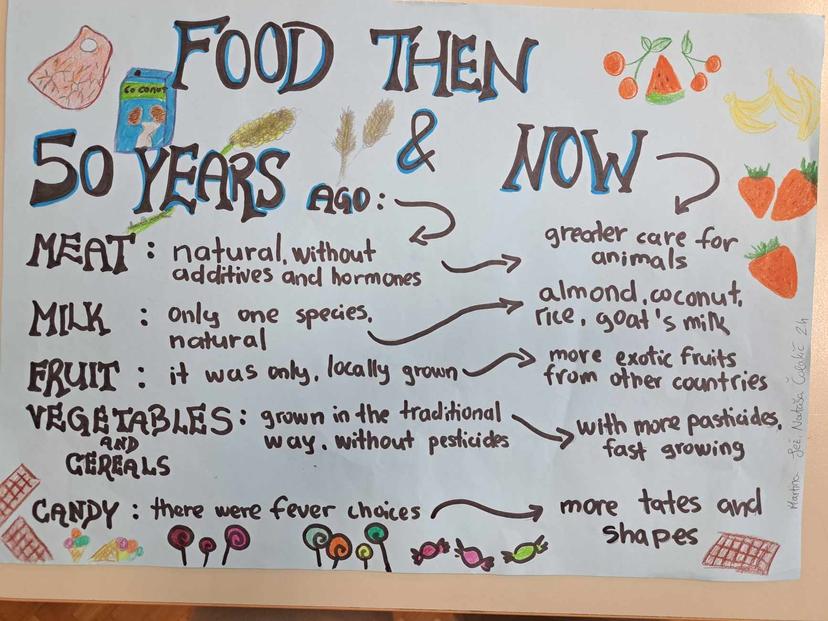 FOOD THEN
& NOW
50 YEARS AGO:
COCONUT
MEAT: natural, without
additives and hormones
greater care for
animals
MILK : only one species,
natural
almond, coconut,
rice, goat's milk
FRUIT : it was only, locally grown
more exotic fruits
from other countries
VEGETABLES: grown in the traditional
AND way, without pesticides
CEREALS
with more pasticides,
fast growing
CANDY : there were fever choices
more tates and
shapes
Martina Nataša 2h